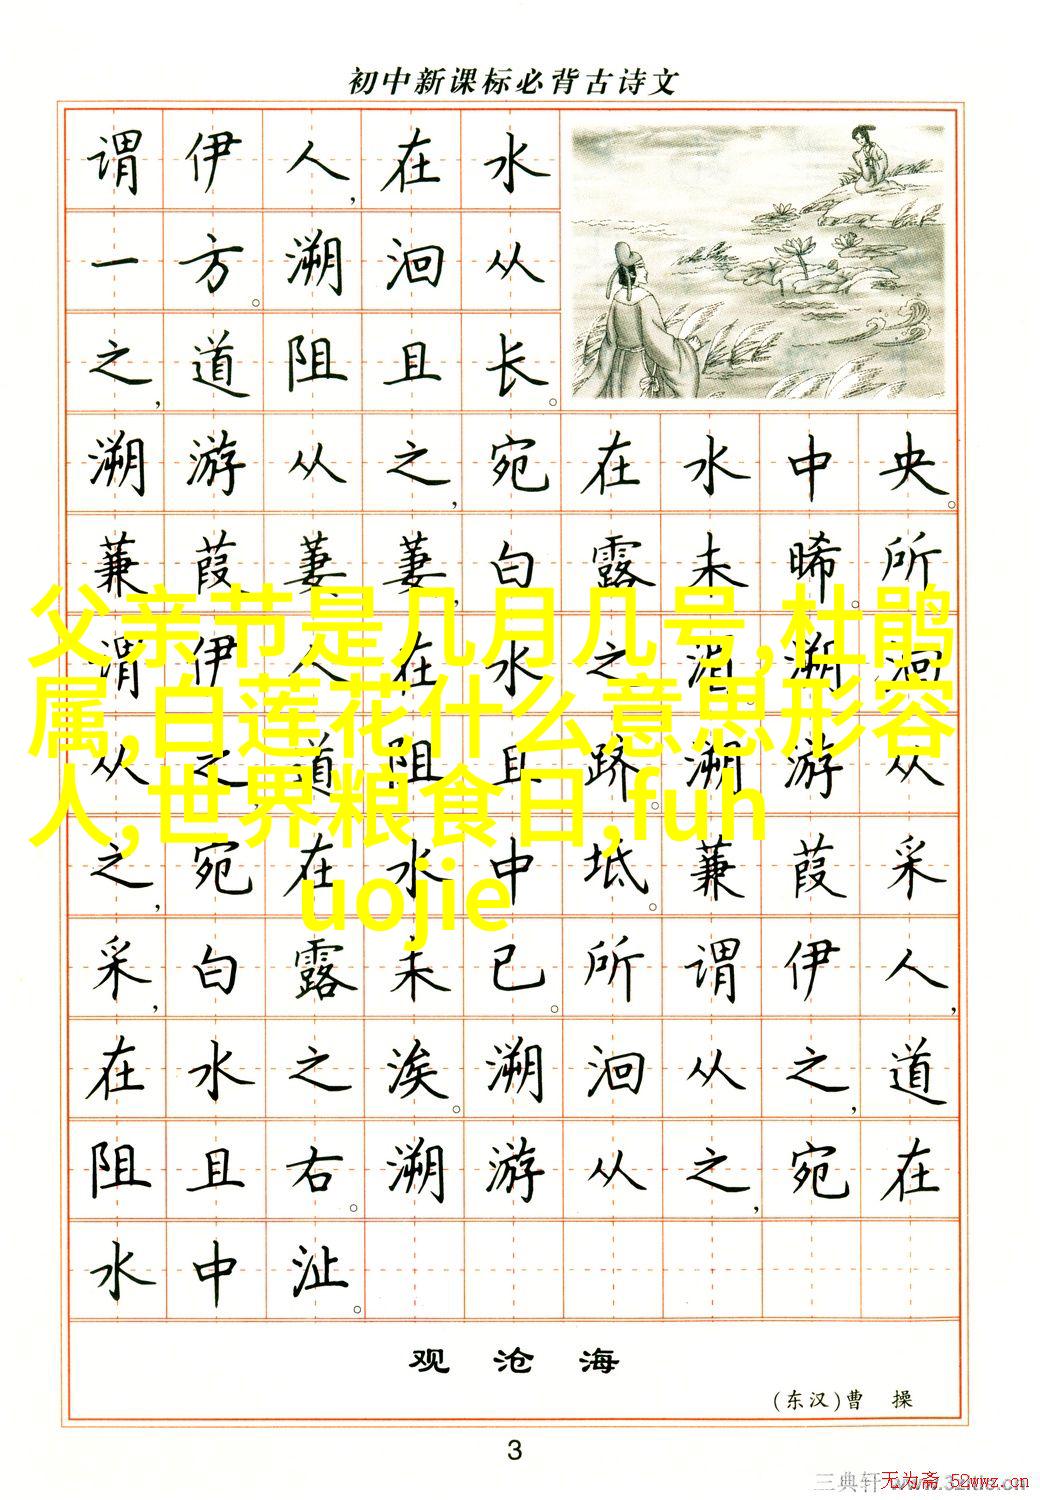 初中新课标必背古诗文
谓伊人,在水
一方。溯洄从
之,道阻且长。
溯游从之,宛在水中央。
蒹葭萋萋,白露未晞。所
谓伊人,在水之湄。溯洄
从之,道阻且跻。溯游从
之,宛在水中坻。蒹葭采
采,白露未已。所谓伊人,
在水之涘。溯洄从之,道
阻且右。溯游从之,宛在
水中沚。
父亲节是几月几号,杜鹃
属,白莲花什么意思形容
人,世界粮食日,fuh
uojie
观沧海
(东汉)曹操
3
三典轩
无为斋 52wwz.cn